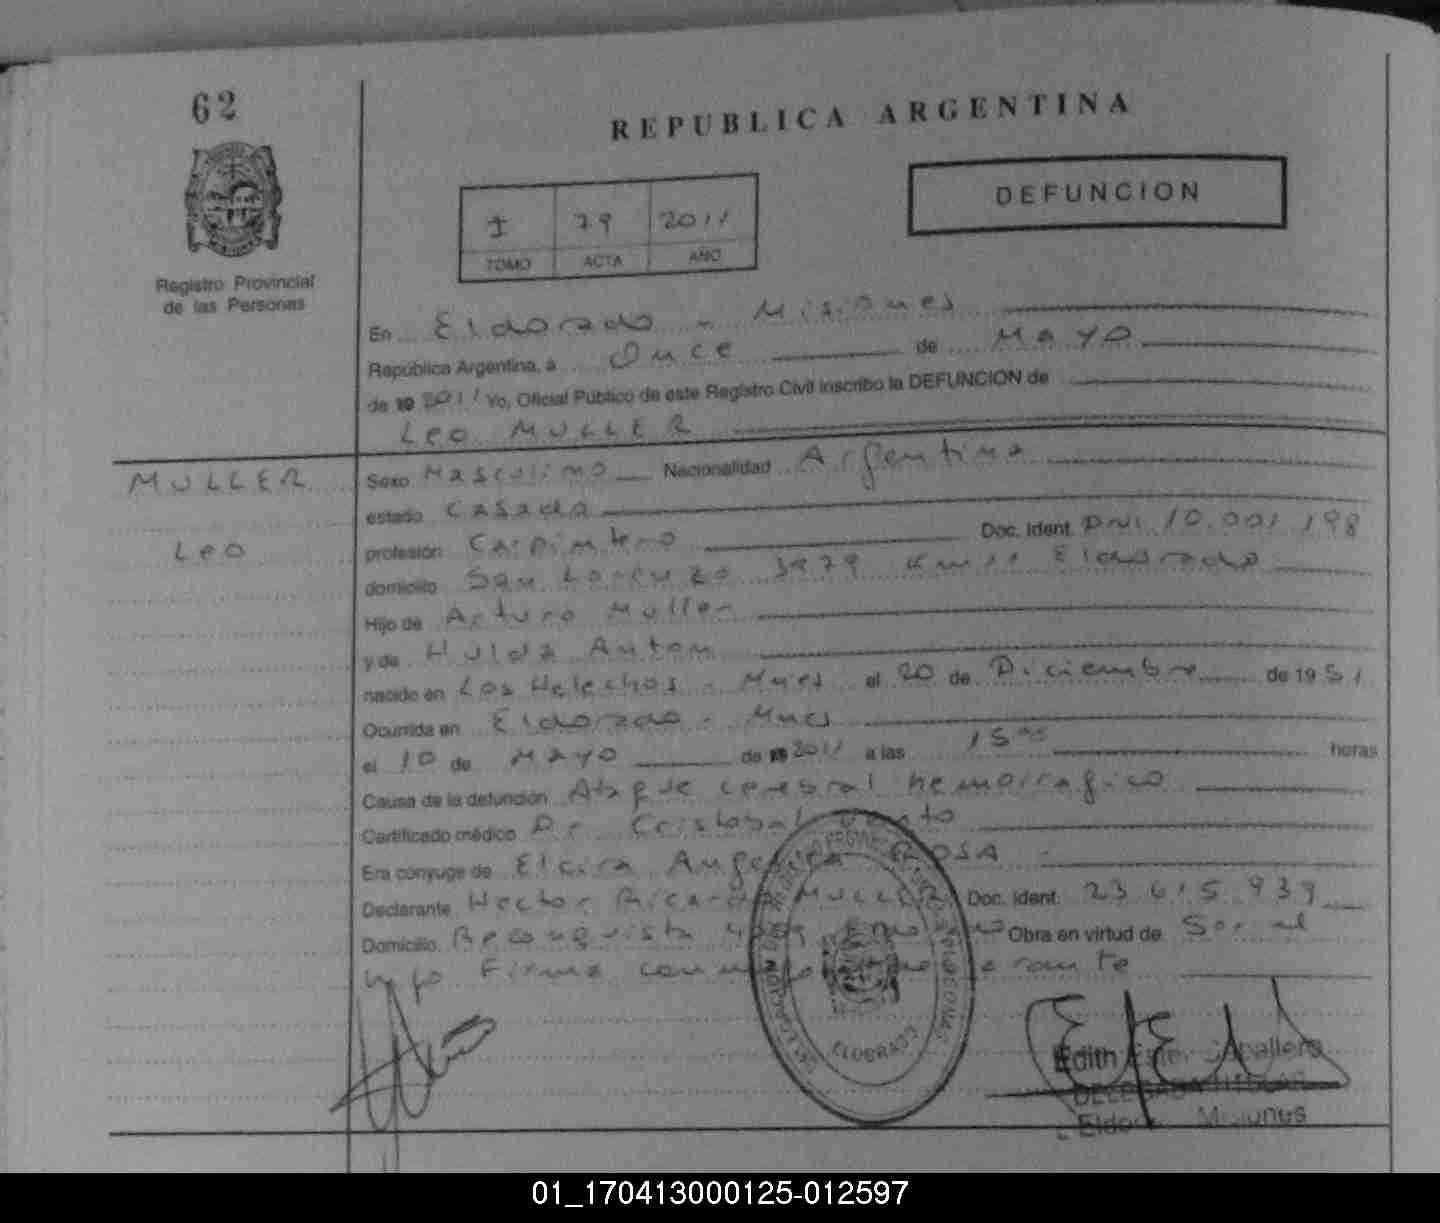 62
REPUBLICA ARGENTINA
DEFUNCION
I 79 2011
TOMO ACTA AÑO
Registro Provincial
de las Personas
En Eldorado - Misiones
República Argentina, a Once de Mayo
de 19 2011 Yo, Oficial Público de este Registro Civil inscribo la DEFUNCION de
Leo MULLER
MULLER
Leo
Sexo Masculino Nacionalidad Argentina
estado Casado
profesión Carpintero Doc. Ident. DNI 10.001.198
domicilio San Lorenzo 3979 Km 11 Eldorado
Hijo de Arturo Muller
y de Hulda Anton
nacido en Los Helechos - Mnes el 20 de Diciembre de 1951
Ocurrida en Eldorado - Mnes
el 10 de Mayo de 19 2011 a las 15 00 horas
Causa de la defunción Ataque cerebral hemorragico
Certificado médico Dr Cristobal
Era cónyuge de Elcira Angelica
Declarante Hector Ricardo MULLER Doc. Ident. 23.615.939
Domicilio Reconquista Obra en virtud de Ser el
hijo Firma conmigo
DELEGACION REGISTRO PROVINCIAL DE LAS PERSONAS
ELDORADO
Edith Ester Caballero
DELEGADA TITULAR
Eldorado Misiones
01_170413000125-012597